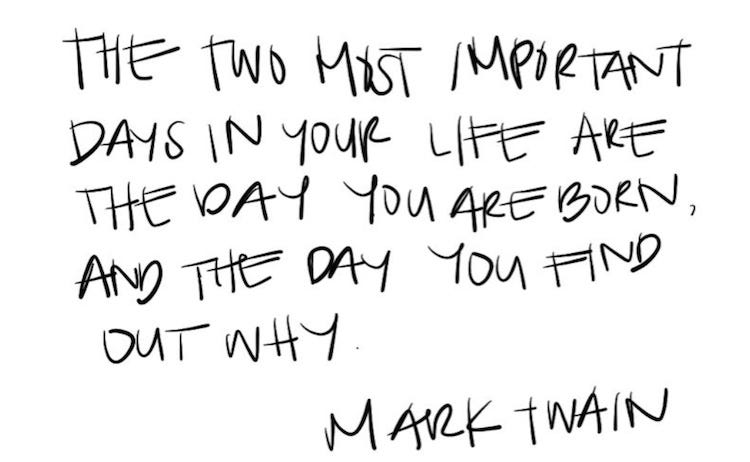 THE TWO MOST IMPORTANT
DAYS IN YOUR LIFE ARE
THE DAY YOU ARE BORN,
AND THE DAY YOU FIND
OUT WHY.
MARK TWAIN